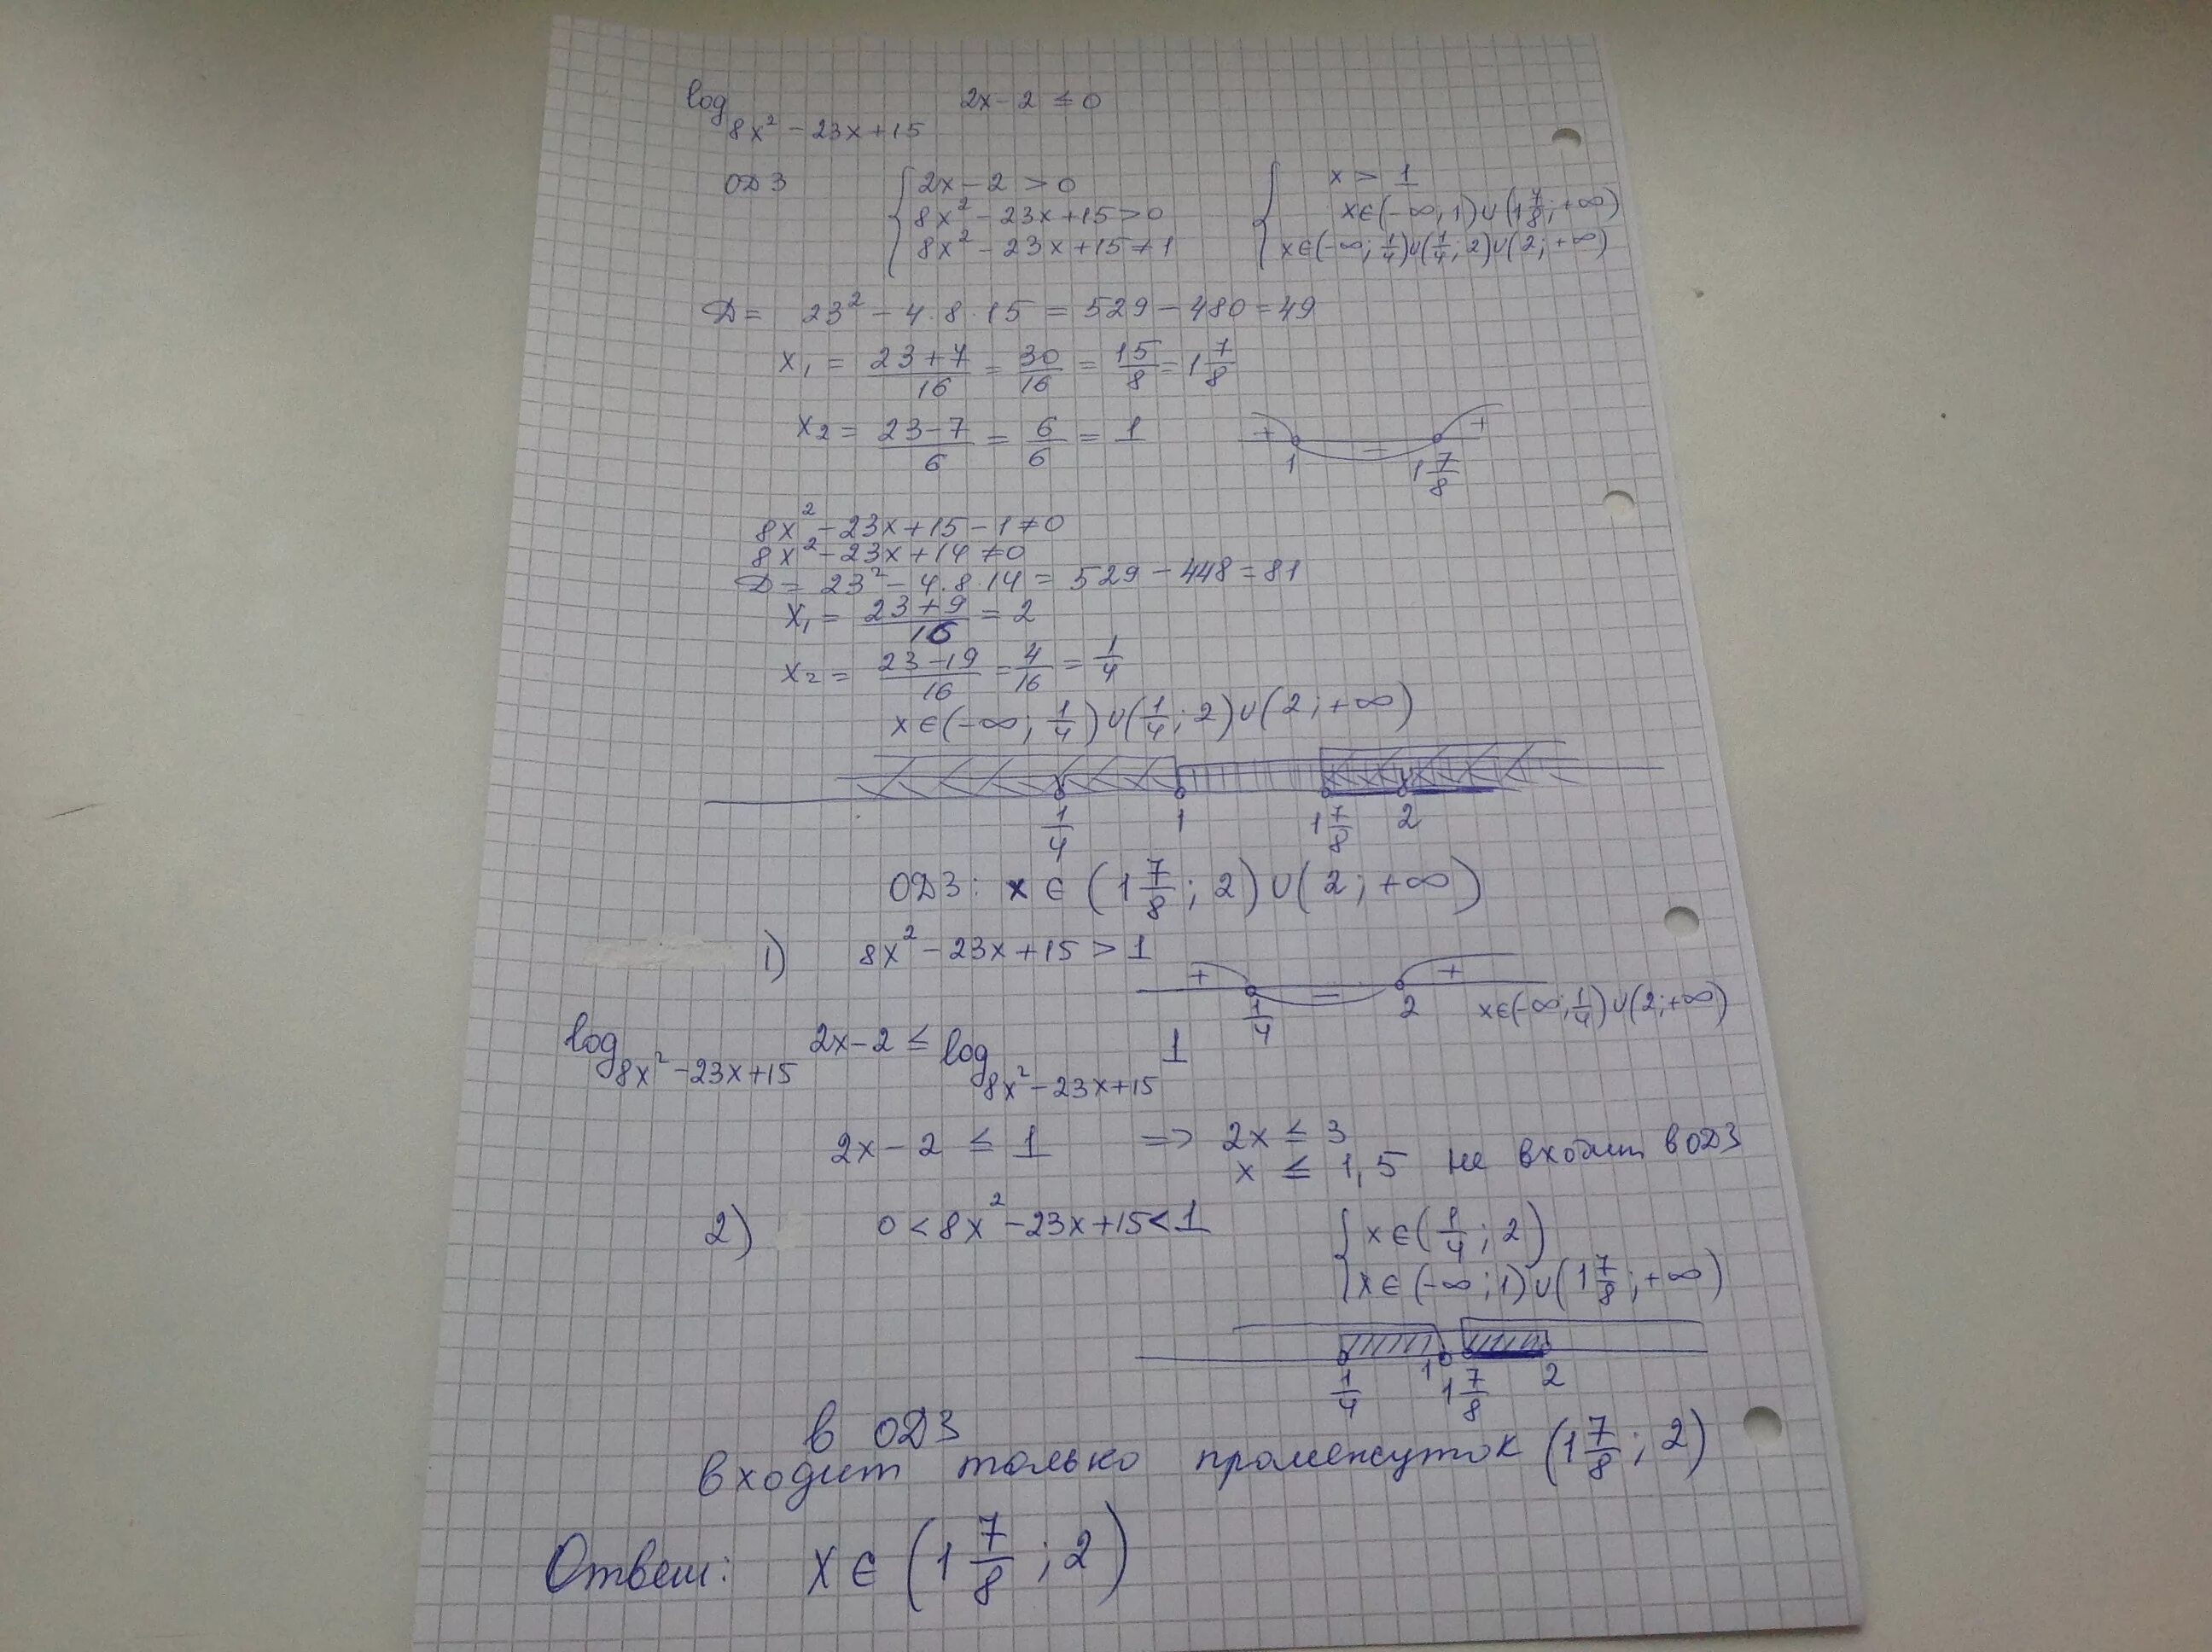 log 8x² − 23x + 15 2x − 2 ≤ 0
ОДЗ { 2x − 2 > 0 { x > 1
8x² − 23x + 15 > 0 x ∈ (−∞; 1) ∪ (1 7/8; +∞)
8x² − 23x + 15 ≠ 1 x ∈ (−∞; 1/4) ∪ (1/4; 2) ∪ (2; +∞)
D = 23² − 4·8·15 = 529 − 480 = 49
x₁ = (23 + 7)/16 = 30/16 = 15/8 = 1 7/8
x₂ = (23 − 7)/6 = 6/6 = 1
+ − +
1 1 7/8
8x² − 23x + 15 − 1 ≠ 0
8x² − 23x + 14 ≠ 0
D = 23² − 4·8·14 = 529 − 448 = 81
x₁ = (23 + 9)/16 = 2
x₂ = (23 − 19)/16 = 4/16 = 1/4
x ∈ (−∞; 1/4) ∪ (1/4; 2) ∪ (2; +∞)
1/4 1 1 7/8 2
ОДЗ: x ∈ (1 7/8; 2) ∪ (2; +∞)
1) 8x² − 23x + 15 > 1
+ − +
1/4 2 x ∈ (−∞; 1/4) ∪ (2; +∞)
log 8x² − 23x + 15 2x − 2 ≤ log 8x² − 23x + 15 1
2x − 2 ≤ 1 => 2x ≤ 3
x ≤ 1,5 не входит в ОДЗ
2) 0 < 8x² − 23x + 15 < 1 { x ∈ (1/4; 2)
x ∈ (−∞; 1) ∪ (1 7/8; +∞)
1/4 1 1 7/8 2
в ОДЗ
входит только промежуток (1 7/8; 2)
Ответ: x ∈ (1 7/8; 2)